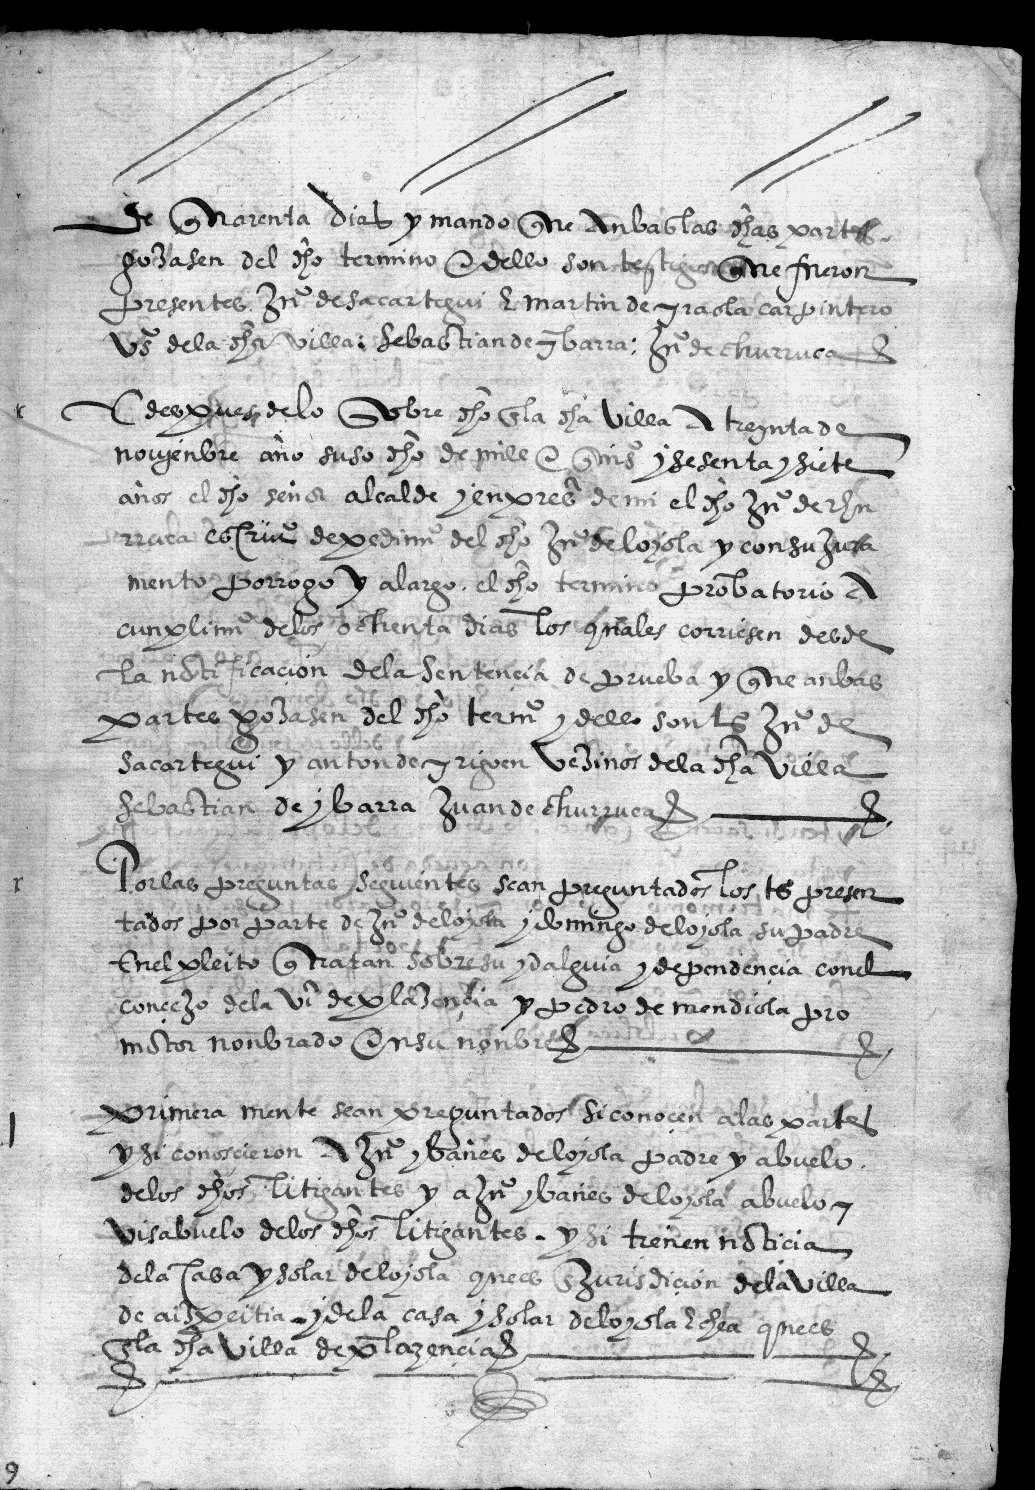 de quarenta dias y mando que anbas las dhas partes
gozasen del dho termino e dello son testigos que fueron
presentes Juº de sacartegui e martin de yraola carpintero
vºs de la dha villa: sebastian de ybarra: Juº de churruca
E despues de lo sobre dho en la dha villa a treynta de
nouienbre año suso dho de mill e quiºs y sesenta y siete
años el dho señor alcalde y en presª de mi el dho Juº de chu
rruca escriuº de pedimiº del dho Juº de loyola y con su Jura
mento porrogo y alargo el dho termino probatorio a
cunplimiº de los ochenta dias los quales corriesen desde
la notificacion de la sentencia de prueba y que anbas
partes gozasen del dho termº y dello son tsº Juº de
sacartegui y anton de yrigoen vezinos de la dha villa
sebastian de ybarra Juan de churruca
Por las preguntas seguientes sean preguntados los tsº presen
tados por parte de Juº de loyola y domingo de loyola su padre
en el pleito que tratan sobre su ydalguia y dependencia con el
concejo de la vª de plazencia y pedro de mendiola pro
motor nonbrado en su nonbre
primera mente sean preguntados si conocen a las partes
y si conoscieron a Juº ybañes de loyola padre y abuelo
de los dhos litigantes y a Juº ybañes de loyola abuelo y
visabuelo de los dhos litigantes. y si tienen noticia
de la casa y solar de loyola ques en Jurisdicion de la villa
de aizpeitia y de la casa y solar de loyola echea ques
en la dha villa de plazencia
9